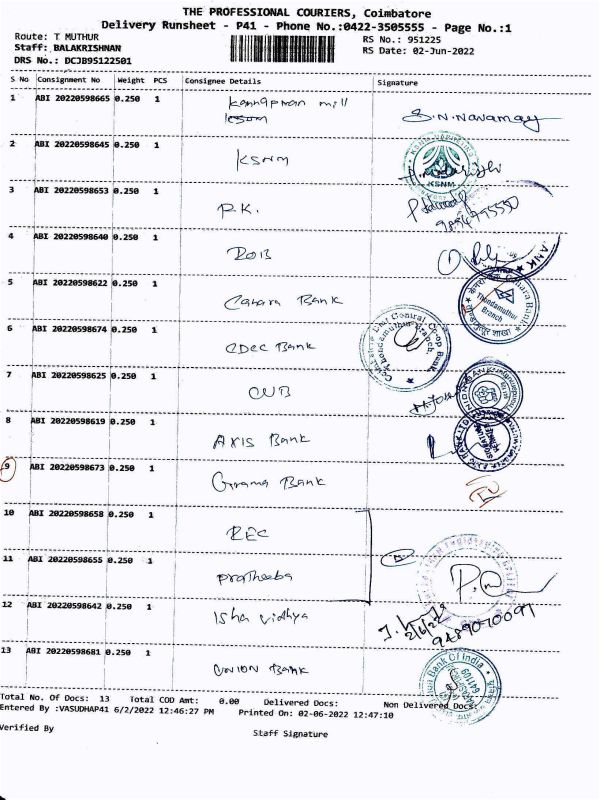 THE PROFESSIONAL COURIERS, Coimbatore
Delivery Runsheet - P41 - Phone No.:0422-3505555 - Page No.:1
Route: T MUTHUR
RS No.: 951225
Staff: BALAKRISHNAN
RS Date: 02-Jun-2022
DRS No.: DCJB95122501
S No Consignment No Weight PCS Consignee Details Signature
1 ABI 20220598665 0.250 1 mill
2 ABI 20220598645 0.250 1 KSNM
KSNM
3 ABI 20220598653 0.250 1 P.K.
4 ABI 20220598640 0.250 1
5 ABI 20220598622 0.250 1 Canara Bank
Canara Bank
Thondamuthur
Branch
6 ABI 20220598674 0.250 1 CDCC Bank
Central Co-op Bank
7 ABI 20220598625 0.250 1 CUB
8 ABI 20220598619 0.250 1 AXIS Bank
9 ABI 20220598673 0.250 1 Grama Bank
10 ABI 20220598658 0.250 1 REC
11 ABI 20220598655 0.250 1 Pratheeba
12 ABI 20220598642 0.250 1 Isha vidhya
2/6/22
9489070097
13 ABI 20220598681 0.250 1 UNION Bank
Union Bank Of India
641109
Total No. Of Docs: 13 Total COD Amt: 0.00 Delivered Docs: Non Delivered Docs:
Entered By :VASUDHAP41 6/2/2022 12:46:27 PM Printed On: 02-06-2022 12:47:10
Verified By
Staff Signature